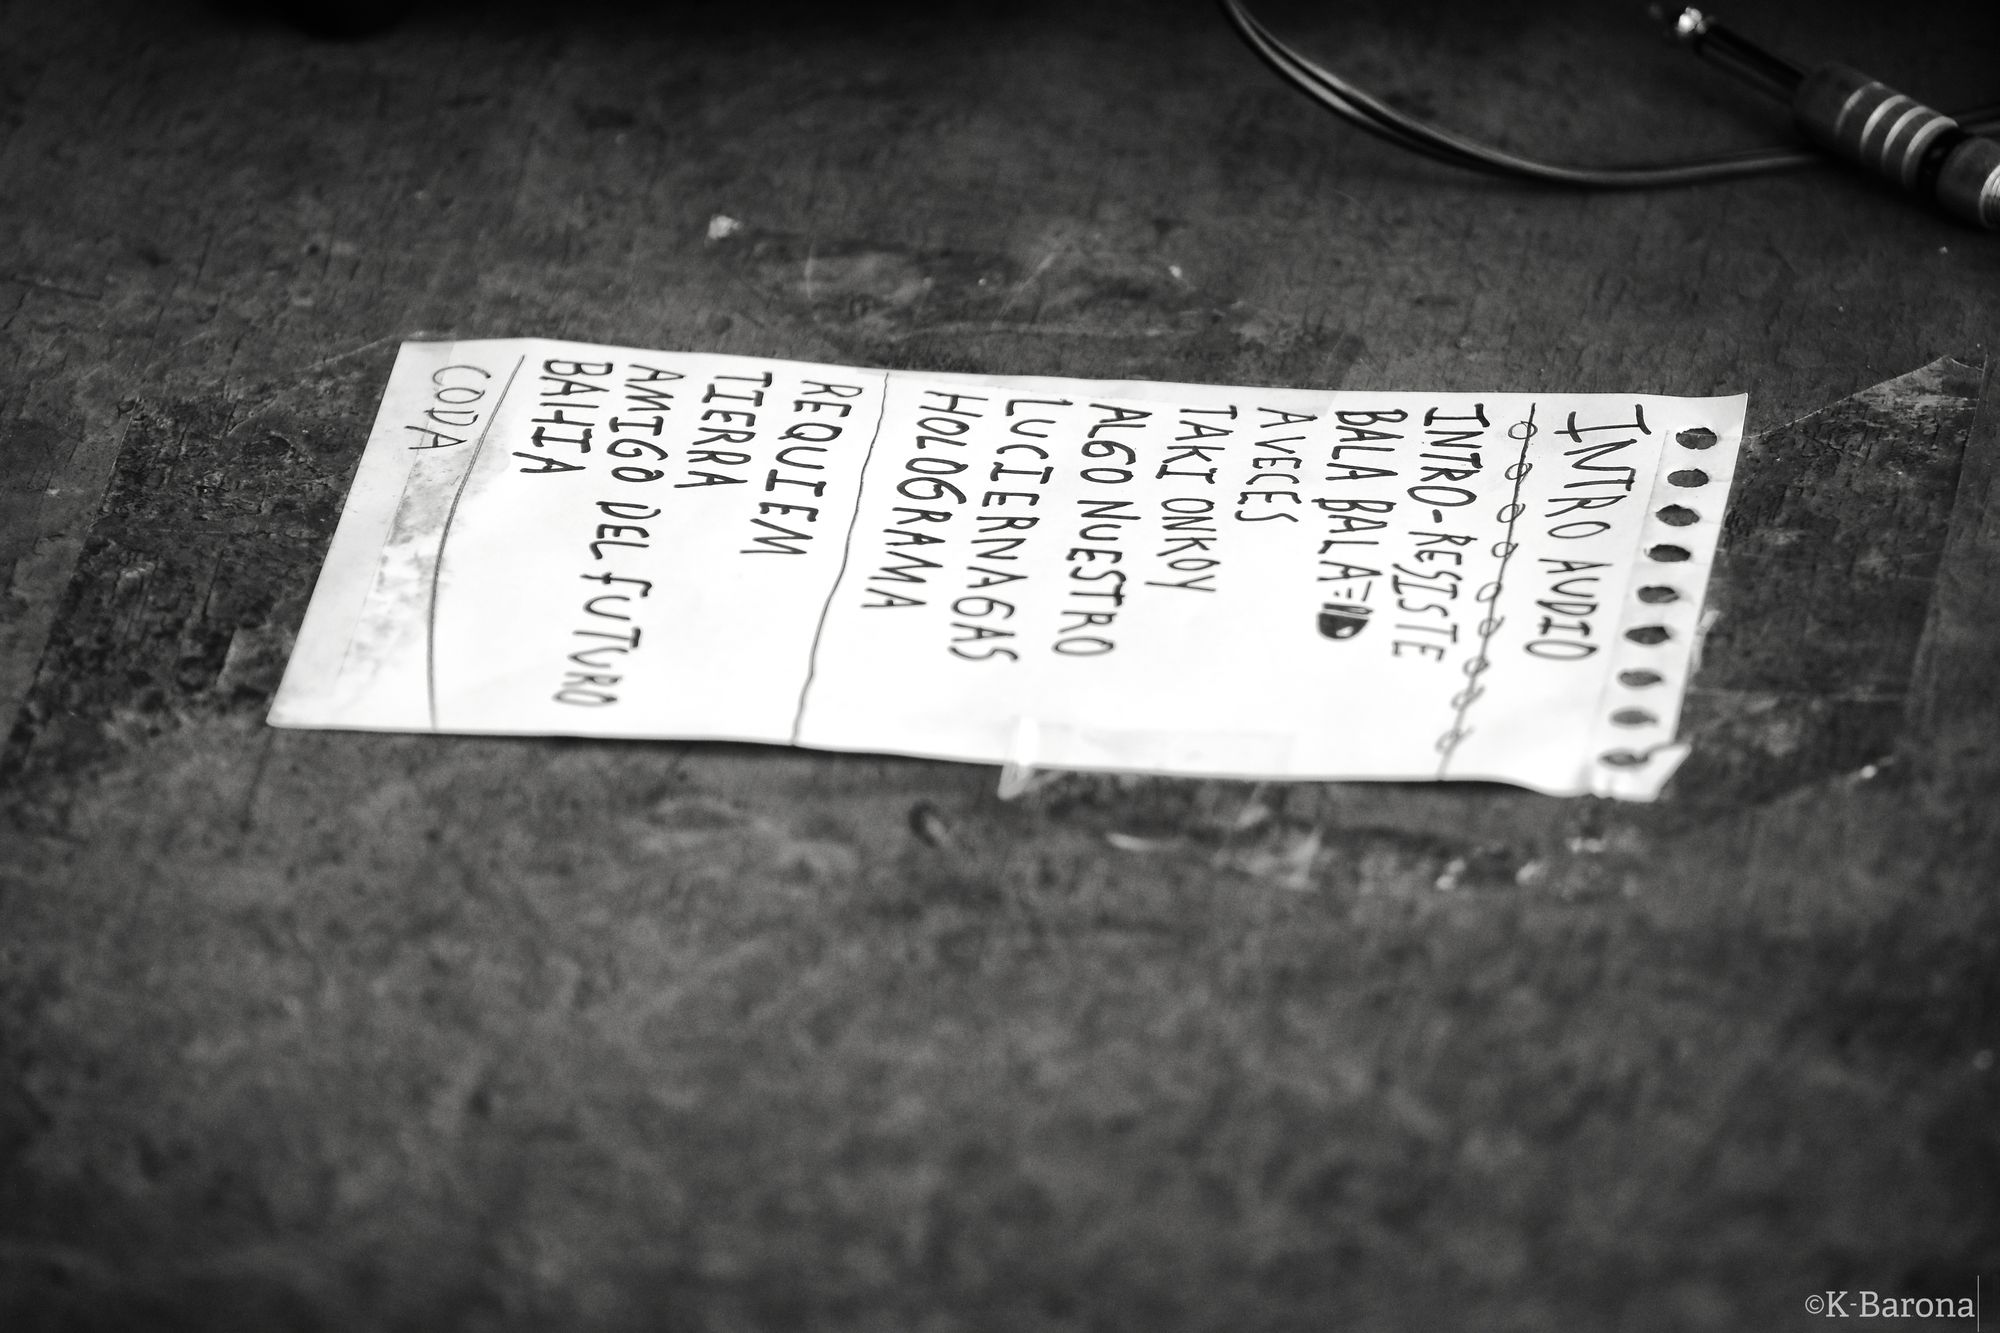 INTRO AUDIO
INTRO-RESISTE
BALA BALA=
AVECES
TAKI ONKOY
ALGO NUESTRO
LUCIERNAGAS
HOLOGRAMA
REQUIEM
TIERRA
AMIGO DEL FUTURO
BAHIA
CODA
©K-Barona